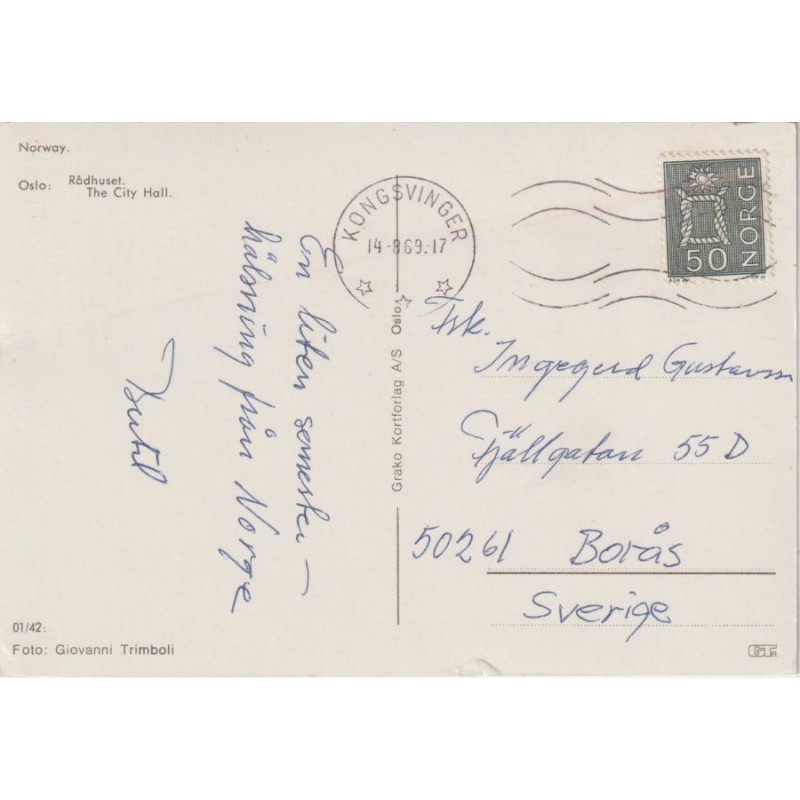 Norway.
Oslo: Rådhuset.
The City Hall.
KONGSVINGER
14-8.69.-17
NORGE
50
En liten semester-
hälsning från Norge
Bertil
Grako Kortforlag A/S Oslo
Frk.
Ingegerd Gustavsson
Fjällgatan 55 D
50261 Borås
Sverige
01/42:
Foto: Giovanni Trimboli